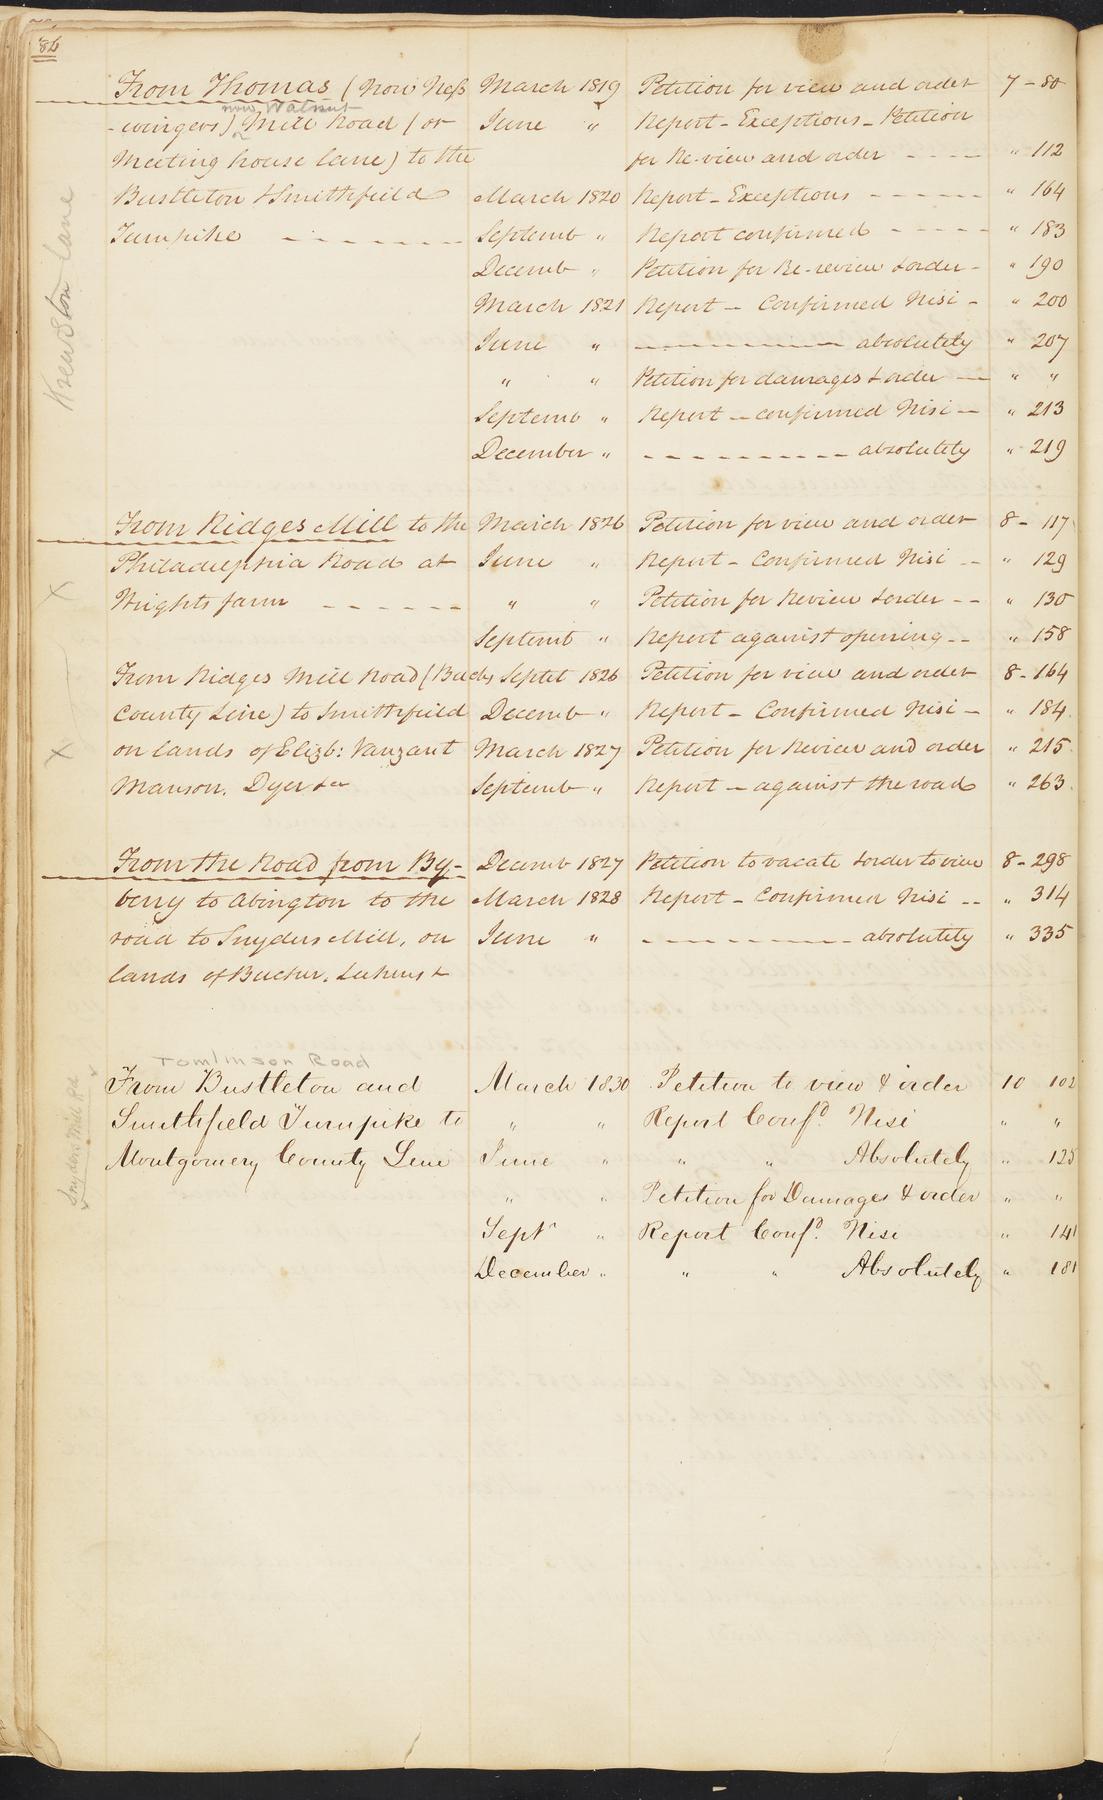 86
From Thomas (Now Neff March 1819 Petition for view and order 7 - 80
now Walnut
-wingers) Mill Road (or June " Report - Exceptions - Petition
Meeting house lane) to the for Re-view and order - - - - " 112
Bustleton & Smithfield March 1820 Report - Exceptions - - - - - " 164
Turnpike - - - - - - - Septemb " Report confirmed - - - - - " 183
Decemb " Petition for Re-review & order - " 190
March 1821 Report - Confirmed Nisi - " 200
June " - - - - - - - - - absolutely " 207
" " Petition for damages & order - " "
Septemb " Report - confirmed Nisi - " 213
December " - - - - - - - - - absolutely " 219
Krewston Lane
From Ridges Mill to the March 1826 Petition for view and order 8 - 117
Philadelphia Road at June " Report - Confirmed Nisi - - " 129
Wrights farm - - - - - - " " Petition for Review & order - - " 130
Septemb " Report against opening - - " 158
X
From Ridges Mill Road (Bucks Septbt 1826 Petition for view and order 8 - 164
County Line) to Smithfield Decemb " Report - Confirmed Nisi - " 184
on lands of Elizb: Vanzant March 1827 Petition for Review and order " 215
Manson, Dyer &c Septemb " Report - against the road " 263
X
From the Road from By- Decemb 1827 Petition to vacate & order to view 8 - 298
berry to Abington to the March 1828 Report - Confirmed Nisi - - " 314
road to Snyders Mill, on June " - - - - - - - - - absolutely " 335
lands of Bucher, &
Tomlinson Road
From Bustleton and March 1830 Petition to view & order 10 102
Smithfield Turnpike to " " Report Confd. Nisi " "
Montgomery County Line June " " " Absolutely " 125
" " Petition for Damages & order " "
Septr " Report Confd. Nisi " 141
December " " " Absolutely " 181
Snyders Mill Rd